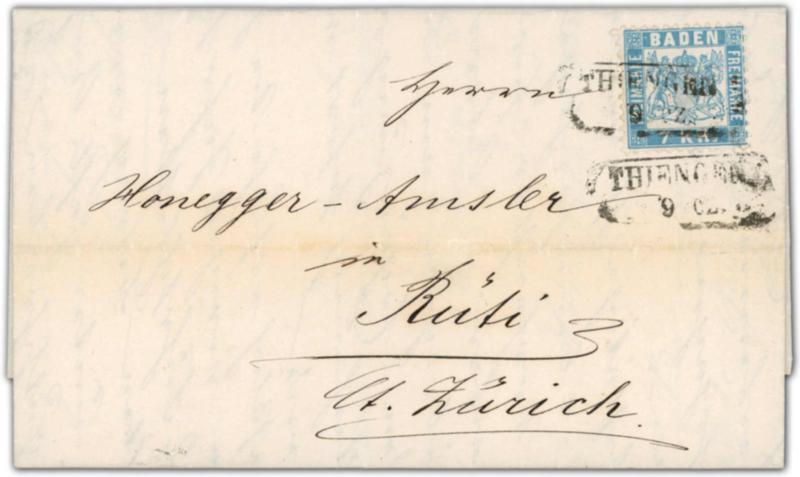 BADEN
FREIMARKE
7 KR.
THIENGEN
9
THIENGEN
9 DZ.
Herrn
Honegger-Amsler
in
Rüti
Ct. Zürich.